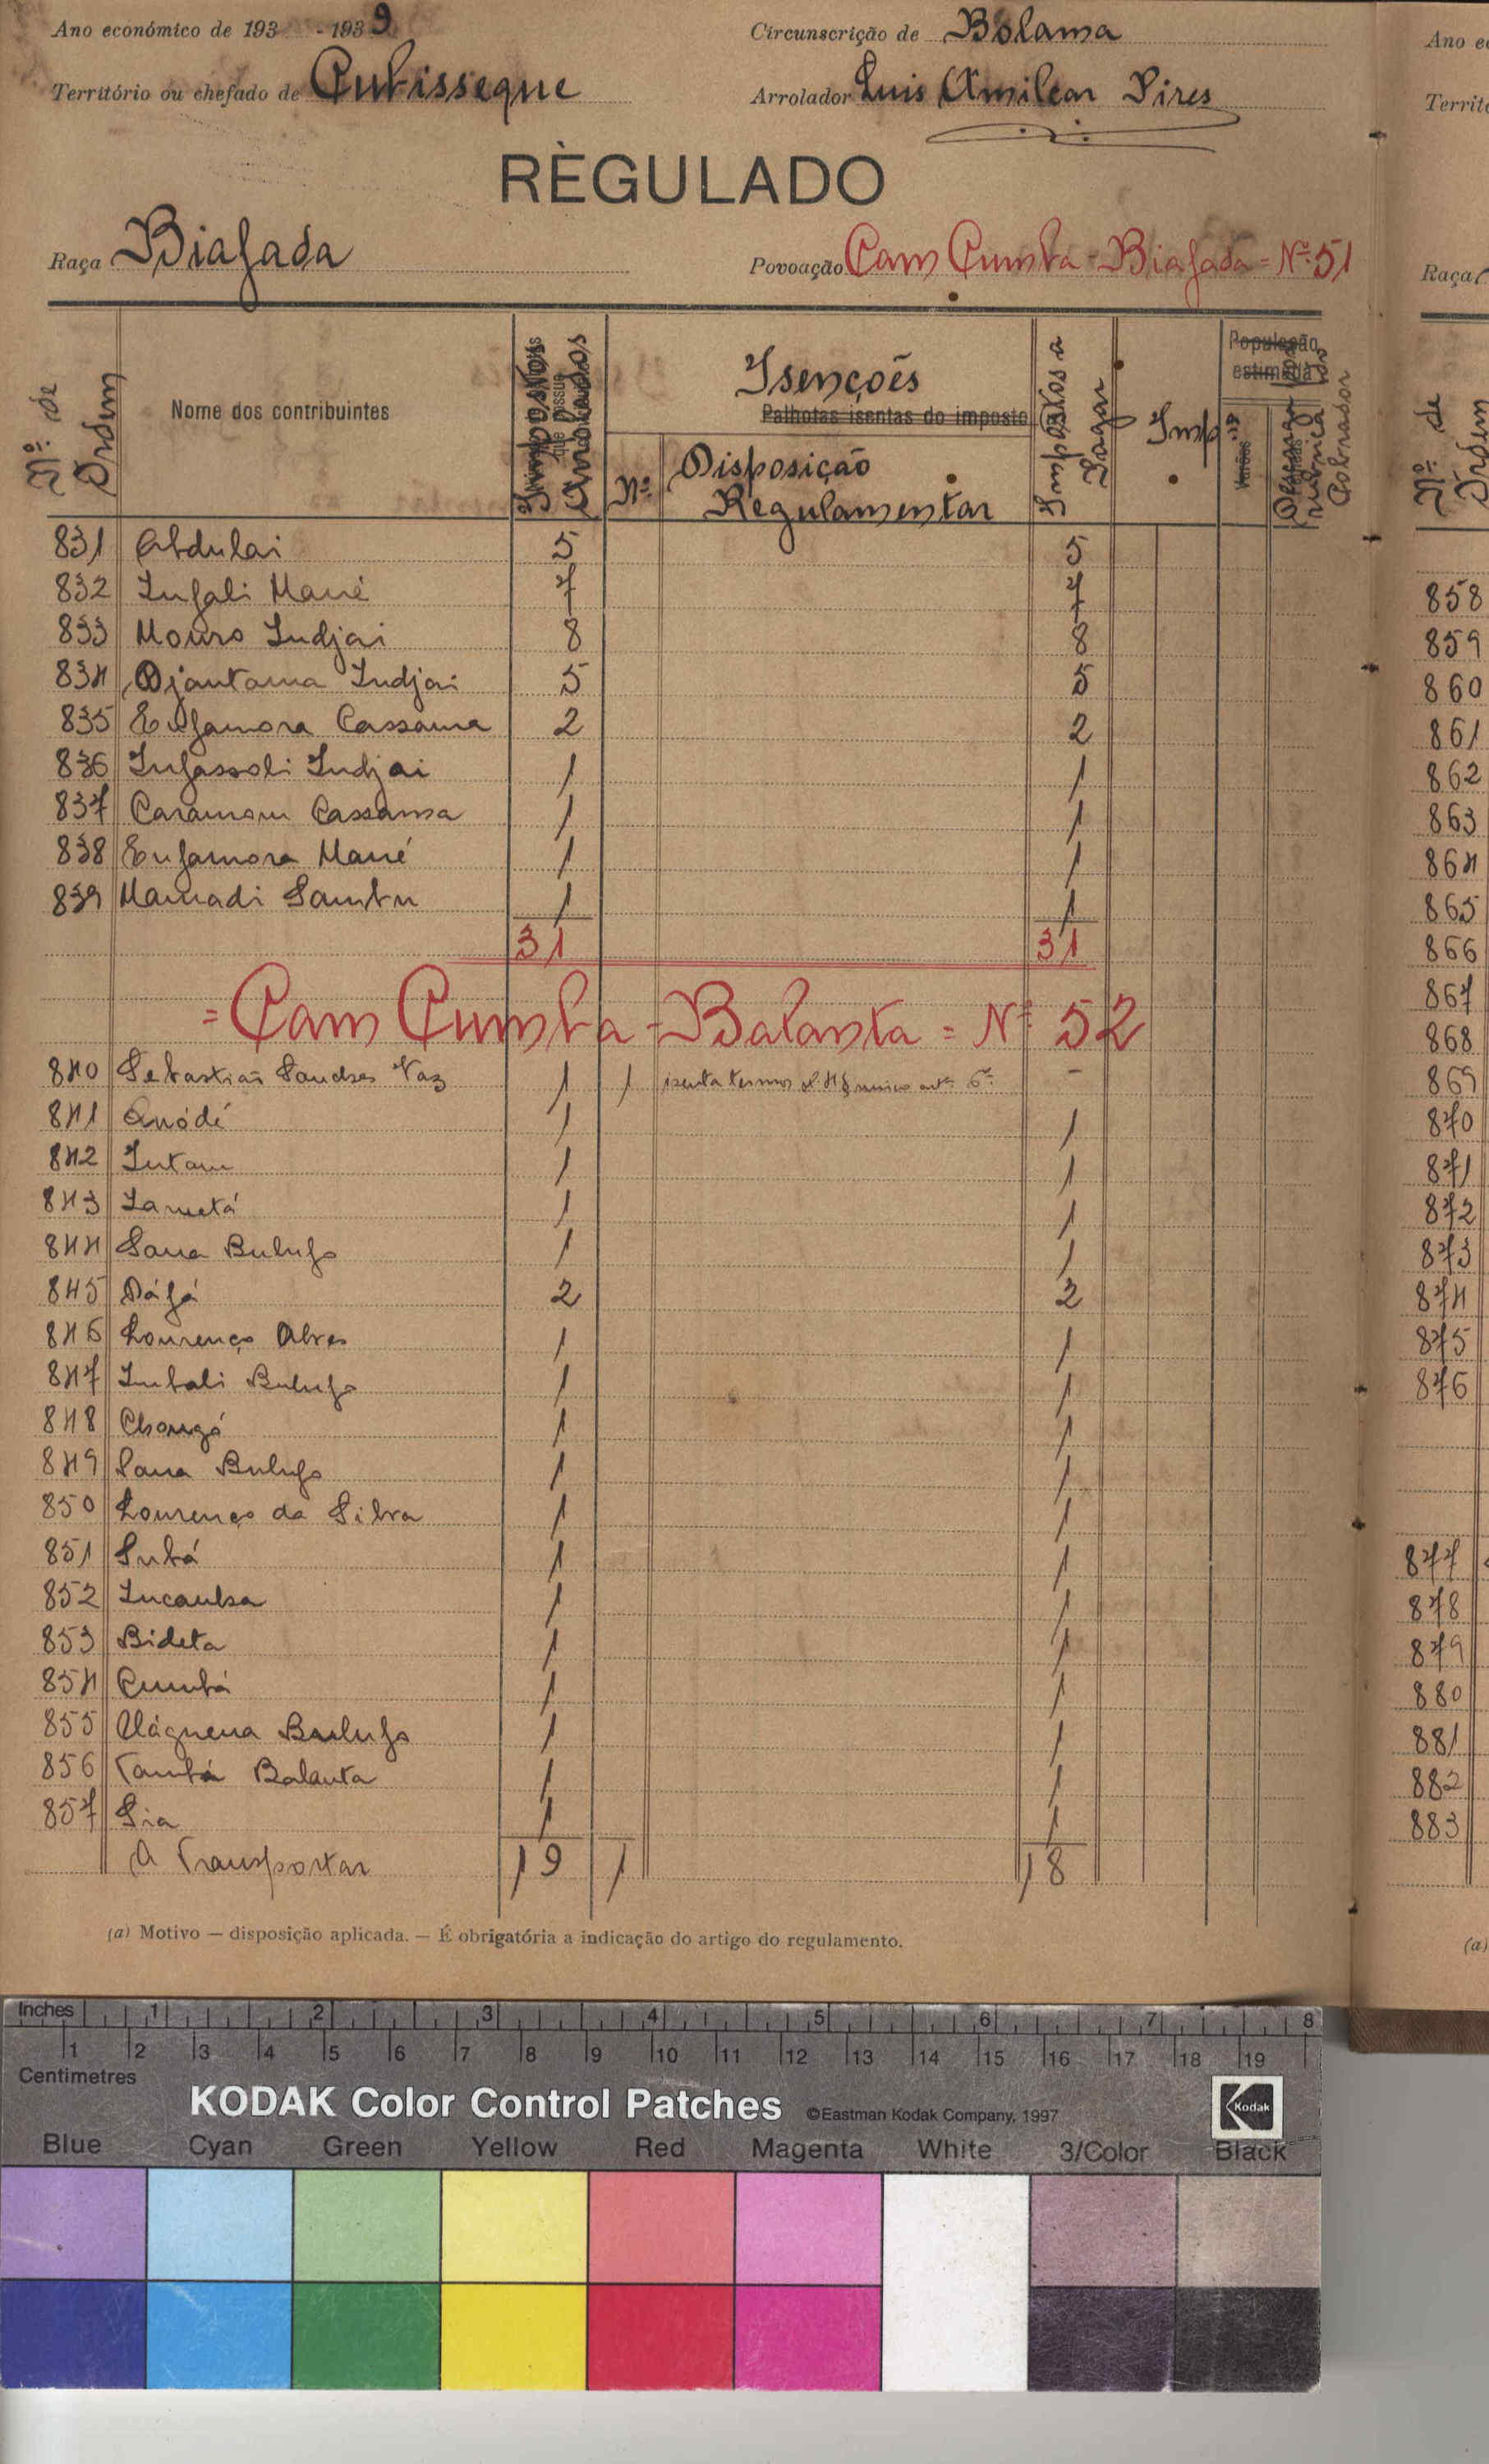 Ano económico de 193 - 1939
Circunscrição de Bolama
Território ou chefado de Cubisseque
Arrolador Luis Amilcar Pires
RÈGULADO
Raça Biafada
Povoação Cam Cumba - Biafada = Nº. 51
Nº. de Ordem
Nome dos contribuintes
Impostos Arrolados
Isenções
Palhotas isentas do imposto (a)
Nº.
Disposição Regulamentar
Impostos a Pagar
Imp
População estimada
Varões
rubrica do Cobrador
831 Abdulai 5 5
832 Infali Mané 7 7
833 Mouro Indjai 8 8
834 Djantama Indjai 5 5
835 Enfamora Cassama 2 2
836 Infassoli Indjai 1 1
837 Caramom Cassama 1 1
838 Enfamora Mané 1 1
839 Mamadi Sambu 1 1
31 31
= Cam Cumba - Balanta = Nº. 52
840 Sebastião Sandes Vaz 1 1 isenta termos único artº 6º. -
841 Anódé 1 1
842 Intam 1 1
843 Lametá 1 1
844 Sana Bulufo 1 1
845 Dáfá 2 2
846 Lourenço Alves 1 1
847 Imbali Bulufo 1 1
848 Chongó 1 1
849 Sana Bulufo 1 1
850 Lourenço da Silva 1 1
851 Subá 1 1
852 Incanha 1 1
853 Bideta 1 1
854 Cumbá 1 1
855 Uáguena Bulufo 1 1
856 Tambá Balanta 1 1
857 Sia 1 1
A Transportar 19 1 18
(a) Motivo — disposição aplicada. — É obrigatória a indicação do artigo do regulamento.
Ano e
Territó
Raça
Nº. de Ordem
858
859
860
861
862
863
864
865
866
867
868
869
870
871
872
873
874
875
876
877
878
879
880
881
882
883
(a)
Inches 1 2 3 4 5 6 7 8
1 2 3 4 5 6 7 8 9 10 11 12 13 14 15 16 17 18 19
Centimetres
KODAK Color Control Patches ©Eastman Kodak Company, 1997 Kodak
Blue Cyan Green Yellow Red Magenta White 3/Color Black